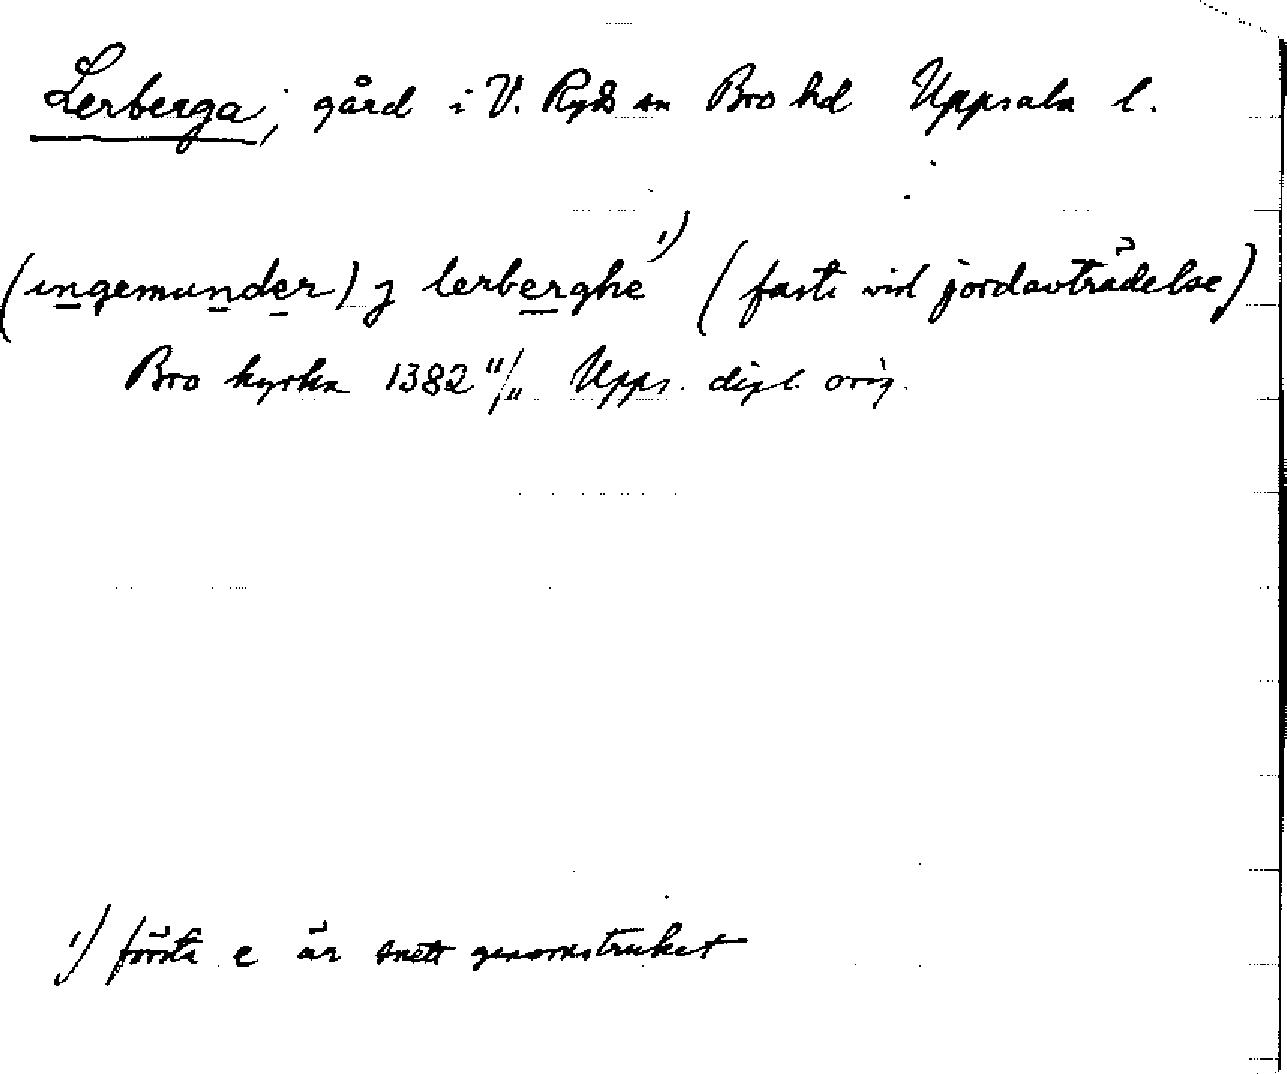 Lerberga, gård i V. Ryds sn Bro hd Uppsala l.
(ingemunder) j lerberghe 1) (faste vid jordavträdelse)
Bro kyrka 1382 11/11 Upps. dipl. orig.
1) första e är snett genomstruket